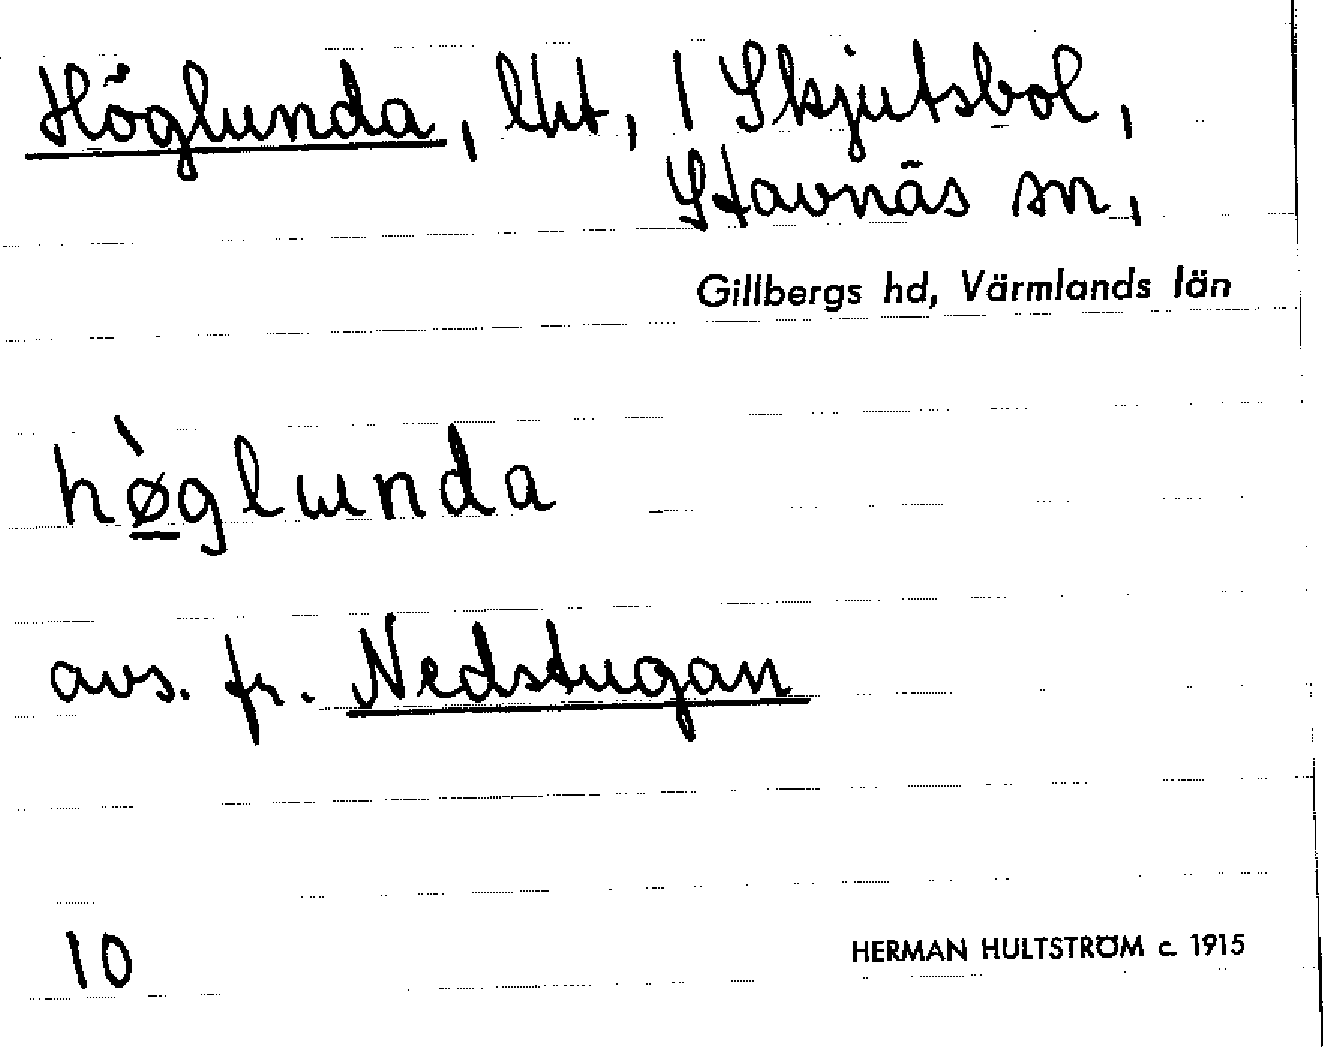 Höglunda, lht, 1 Skjutsbol,
Stavnäs sn,
Gillbergs hd, Värmlands län
hø̀glɯnda
avs. fr. Nedstugan
10
HERMAN HULTSTRÖM c. 1915